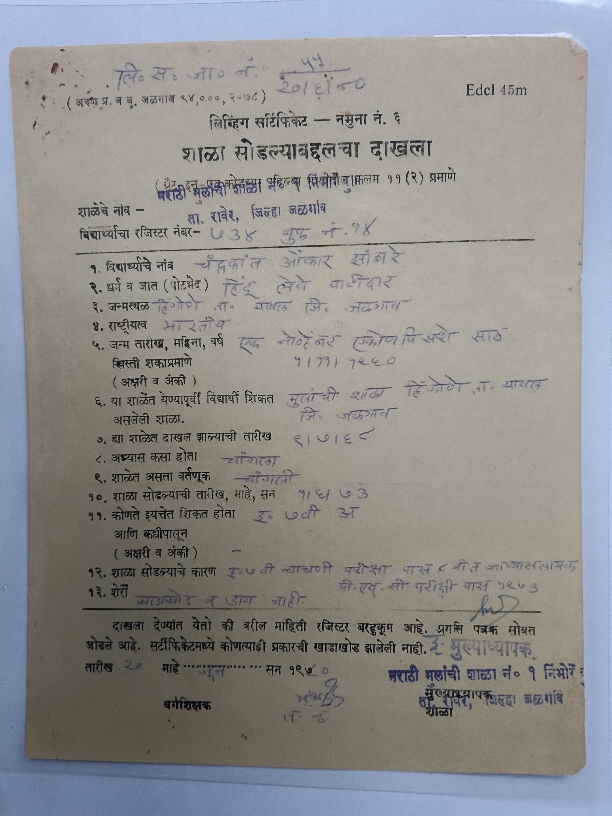 लि. स. जा. नं. ५५
२०।६।८०
Edcl 45m
( अरुण प्र. व बु. जळगाव ९४,०००, २-७८ )
लिव्हिंग सर्टिफिकेट — नमुना नं. ६
शाळा सोडल्याबद्दलचा दाखला
कलम ११ (२) प्रमाणे
मराठी मुलांची शाळा नं० १
शाळेचे नांव – ता. रावेर, जिल्हा जळगांव
विद्यार्थ्याचा रजिस्टर नंबर– ७३४ बुक नं. १४
१. विद्यार्थ्याचे नांव चंद्रकांत ओंकार
२. धर्म व जात (पोटभेद) हिंदू लेवे पाटीदार
३. जन्मस्थळ हिंगोणे ता. यावल जि. जळगाव
४. राष्ट्रीयत्व भारतीय
५. जन्म तारीख, महिना, वर्ष एक नोव्हेंबर एकोणविसशे साठ
ख्रिस्ती शकाप्रमाणे १।११।१९६०
( अक्षरी व अंकी )
६. या शाळेत येण्यापूर्वी विद्यार्थी शिकत मुलांची शाळा हिंगोणे ता. यावल
असलेली शाळा. जि. जळगाव
७. ह्या शाळेत दाखल झाल्याची तारीख ९।७।६८
८. अभ्यास कसा होता चांगला
९. शाळेत असता वर्तणूक चांगली
१०. शाळा सोडल्याची तारीख, माहे, सन
११. कोणते इयत्तेत शिकत होता इ. ७वी अ
आणि कधीपासून
( अक्षरी व अंकी ) –
१२. शाळा सोडल्याचे कारण इ. ७ वी चाचणी परीक्षा पास ८ वीत
१३. शेरा पी. एस. सी परीक्षा पास १९७३
खाडाखोड व डाग नाही.
दाखला देण्यांत येतो की वरील माहिती रजिस्टर बरहुकूम आहे. प्रगति पत्रक सोबत
जोडले आहे. सर्टीफिकेटमध्ये कोणत्याही प्रकारची खाडाखोड झालेली नाही.
इ. मुख्याध्यापक
तारीख २० माहे जून सन १९८०
मराठी मुलांची शाळा नं० १
वर्गशिक्षक
मुख्याध्यापक
ता. रावेर, जिल्हा जळगांव
शाळा